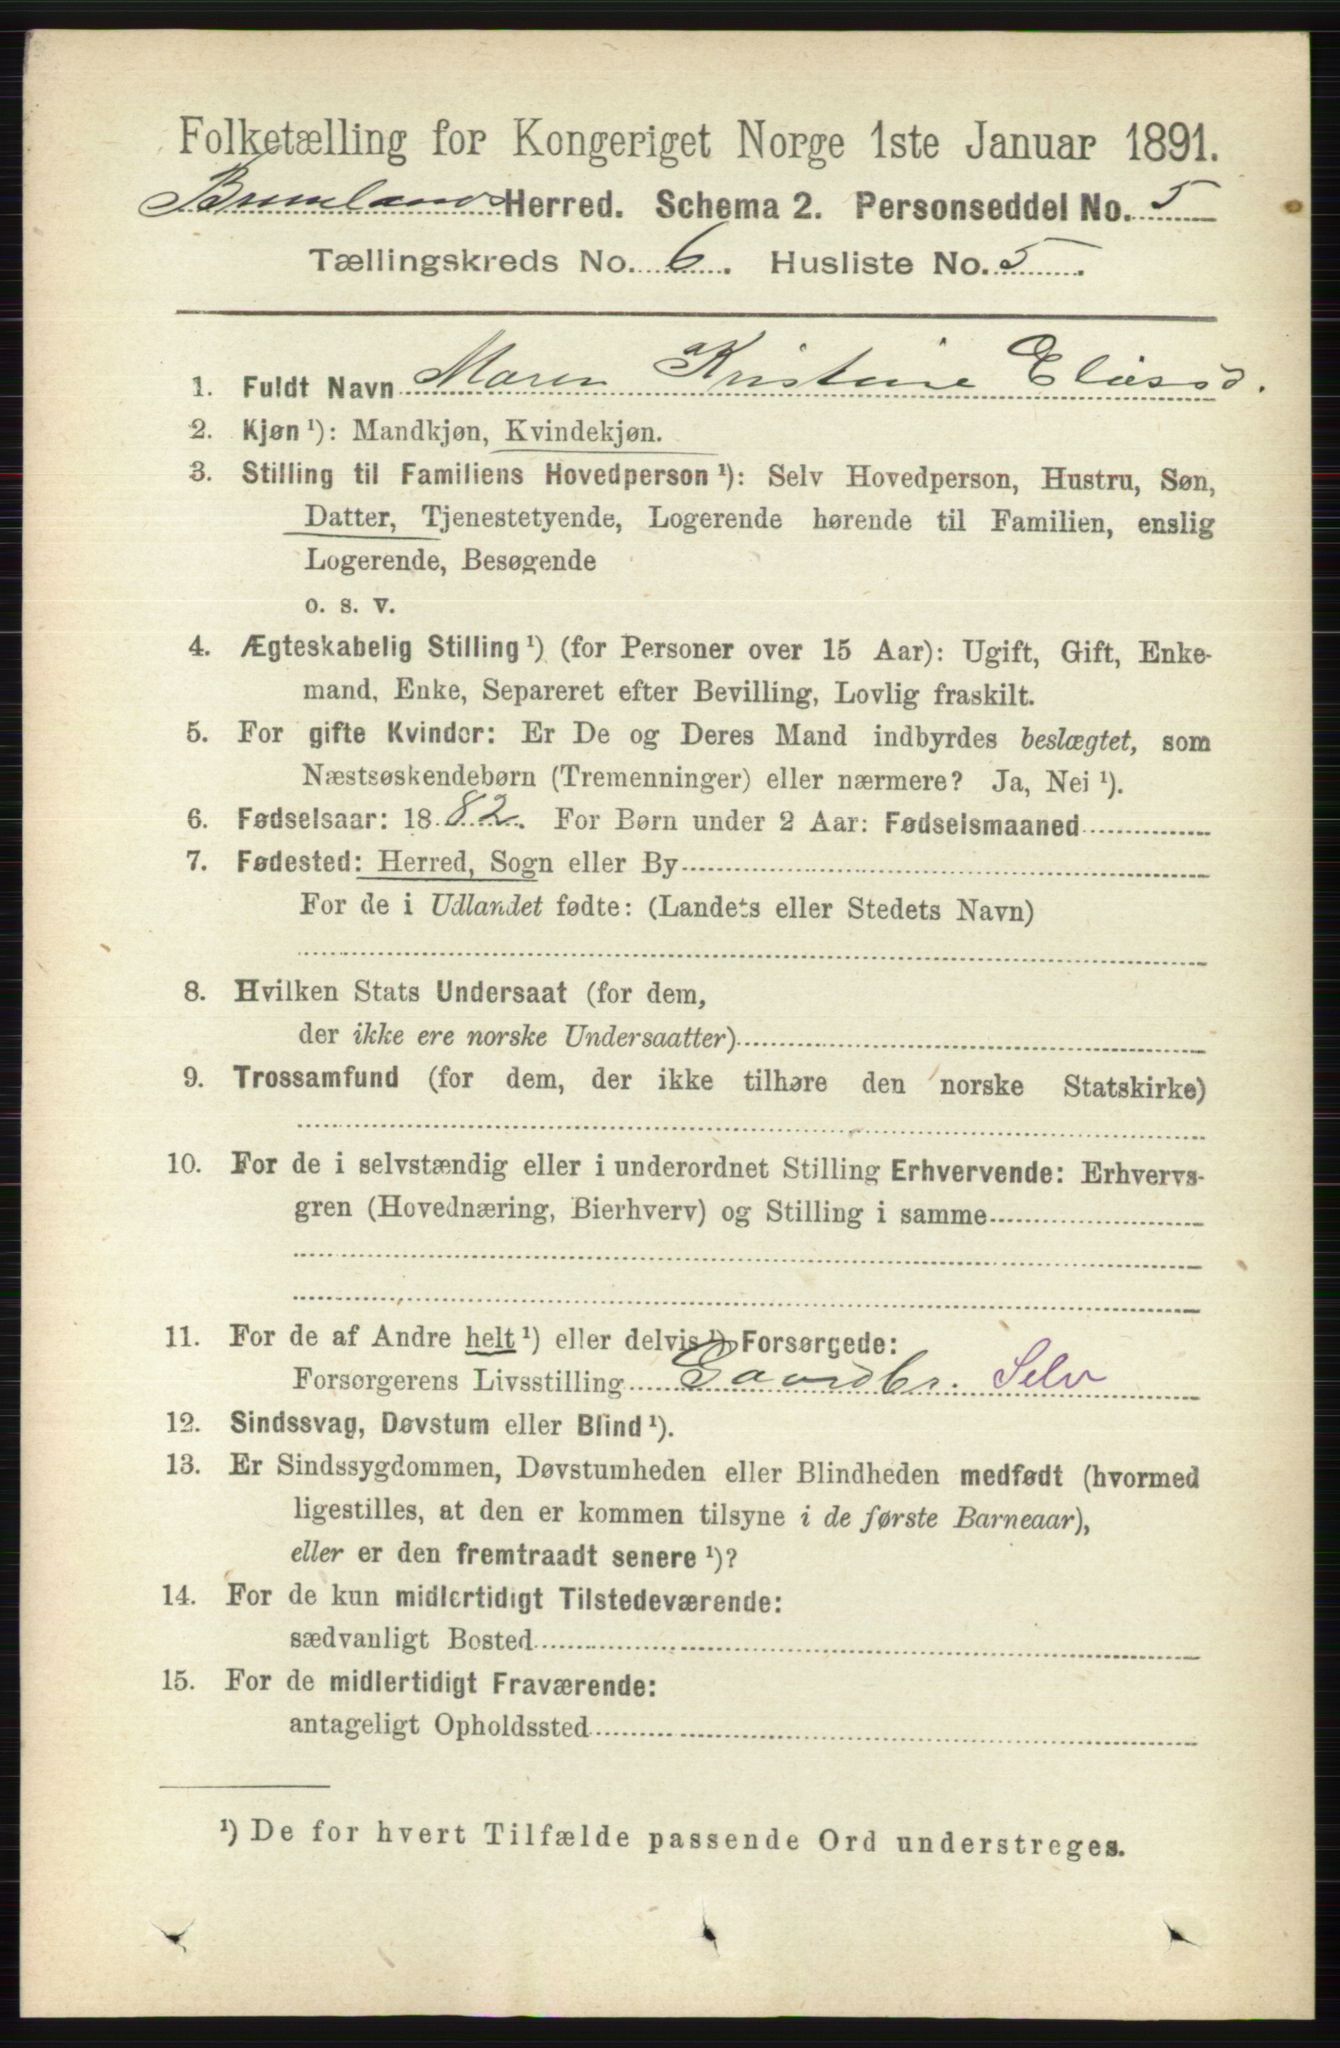 Folketælling for Kongeriget Norge 1ste Januar 1891.
Brunlanes Herred. Schema 2. Personseddel No. 5
Tællingskreds No. 6. Husliste No. 5.
1. Fuldt Navn Maren Kristine Eliasd.
2. Kjøn ¹): Mandkjøn, Kvindekjøn.
3. Stilling til Familiens Hovedperson ¹): Selv Hovedperson, Hustru, Søn,
Datter, Tjenestetyende, Logerende hørende til Familien, enslig
Logerende, Besøgende
o. s. v.
4. Ægteskabelig Stilling ¹) (for Personer over 15 Aar): Ugift, Gift, Enke-
mand, Enke, Separeret efter Bevilling, Lovlig fraskilt.
5. For gifte Kvinder: Er De og Deres Mand indbyrdes beslægtet, som
Næstsøskendebørn (Tremenninger) eller nærmere? Ja, Nei ¹).
6. Fødselsaar: 1882. For Børn under 2 Aar: Fødselsmaaned
7. Fødested: Herred, Sogn eller By
For de i Udlandet fødte: (Landets eller Stedets Navn)
8. Hvilken Stats Undersaat (for dem,
der ikke ere norske Undersaatter)
9. Trossamfund (for dem, der ikke tilhøre den norske Statskirke)
10. For de i selvstændig eller i underordnet Stilling Erhvervende: Erhvervs-
gren (Hovednæring, Bierhverv) og Stilling i samme
11. For de af Andre helt ¹) eller delvis ¹) Forsørgede:
Forsørgerens Livsstilling Gaardbr. Selv
12. Sindssvag, Døvstum eller Blind ¹).
13. Er Sindssygdommen, Døvstumheden eller Blindheden medfødt (hvormed
ligestilles, at den er kommen tilsyne i de første Barneaar),
eller er den fremtraadt senere ¹)?
14. For de kun midlertidigt Tilstedeværende:
sædvanligt Bosted
15. For de midlertidigt Fraværende:
antageligt Opholdssted
¹) De for hvert Tilfælde passende Ord understreges.